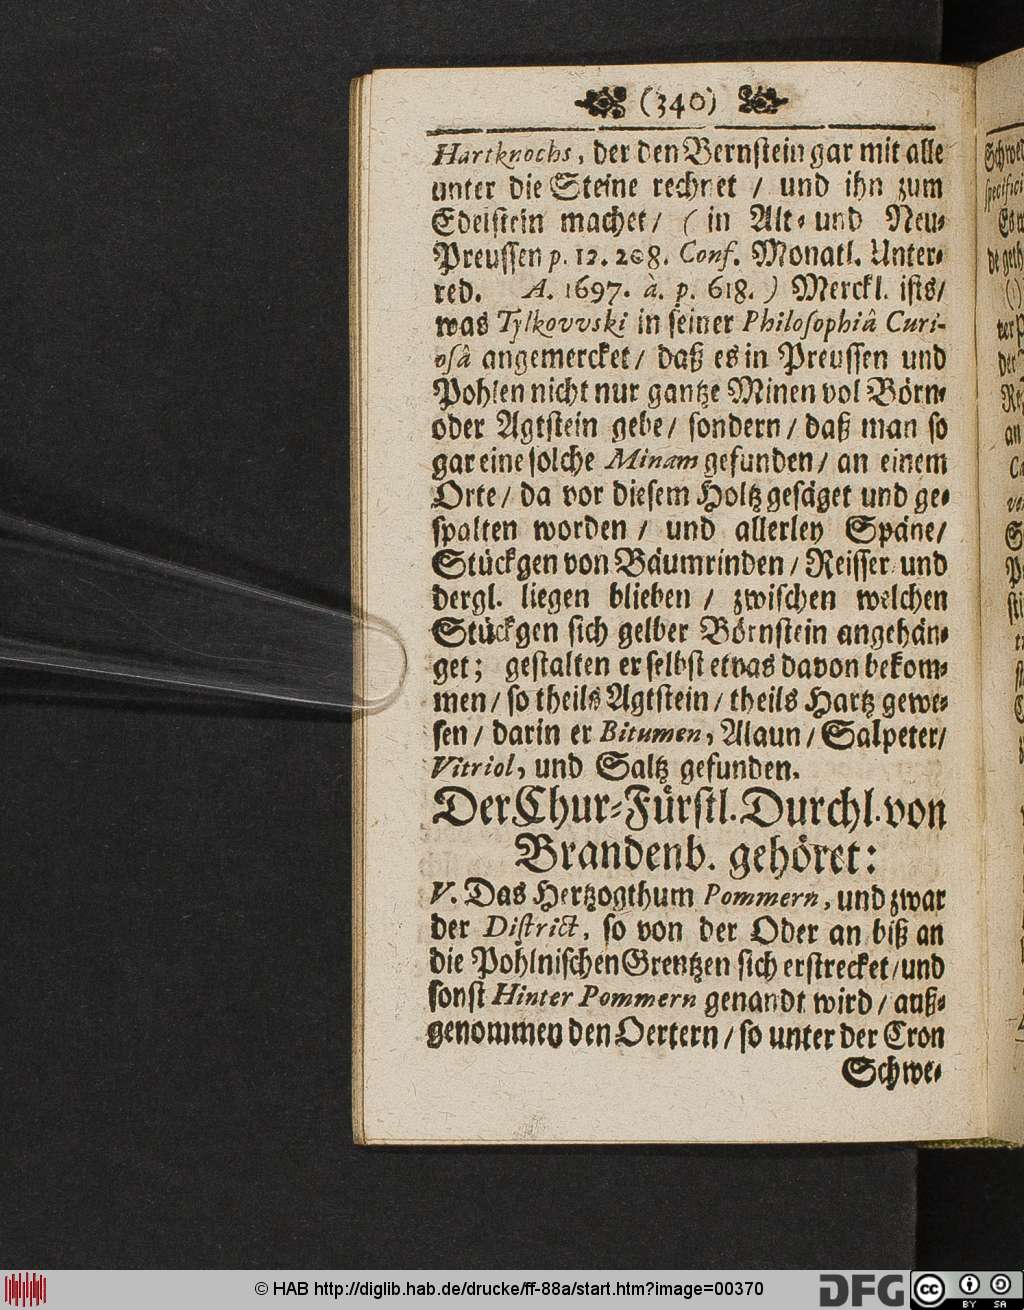 (340)
Hartknochs, der den Bernstein gar mit alle
unter die Steine rechnet / und ihn zum
Edelstein machet / ( in Alt- und Neu-
Preussen p. 12. 208. Conf. Monatl. Unter-
red. A. 1697. à. p. 618. ) Merckl. ists /
was Tylkovvski in seiner Philosophiâ Curi-
osâ angemercket / daß es in Preussen und
Pohlen nicht nur gantze Minen vol Börn-
oder Agtstein gebe / sondern / daß man so
gar eine solche Minam gefunden / an einem
Orte / da vor diesem Holtz gesäget und ge-
spalten worden / und allerley Späne /
Stückgen von Bäumrinden / Reisser und
dergl. liegen blieben / zwischen welchen
Stückgen sich gelber Börnstein angehän-
get; gestalten er selbst etvas davon bekom-
men / so theils Agtstein / theils Hartz gewe-
sen / darin er Bitumen, Alaun / Salpeter /
Vitriol, und Saltz gefunden.
Der Chur-Fürstl. Durchl. von
Brandenb. gehöret:
V. Das Hertzogthum Pommern, und zwar
der District, so von der Oder an biß an
die Pohlnischen Grentzen sich erstrecket / und
sonst Hinter Pommern genandt wird / auß-
genommen den Oertern / so unter der Cron
Schwe-
© HAB http://diglib.hab.de/drucke/ff-88a/start.htm?image=00370
DFG
cc BY SA